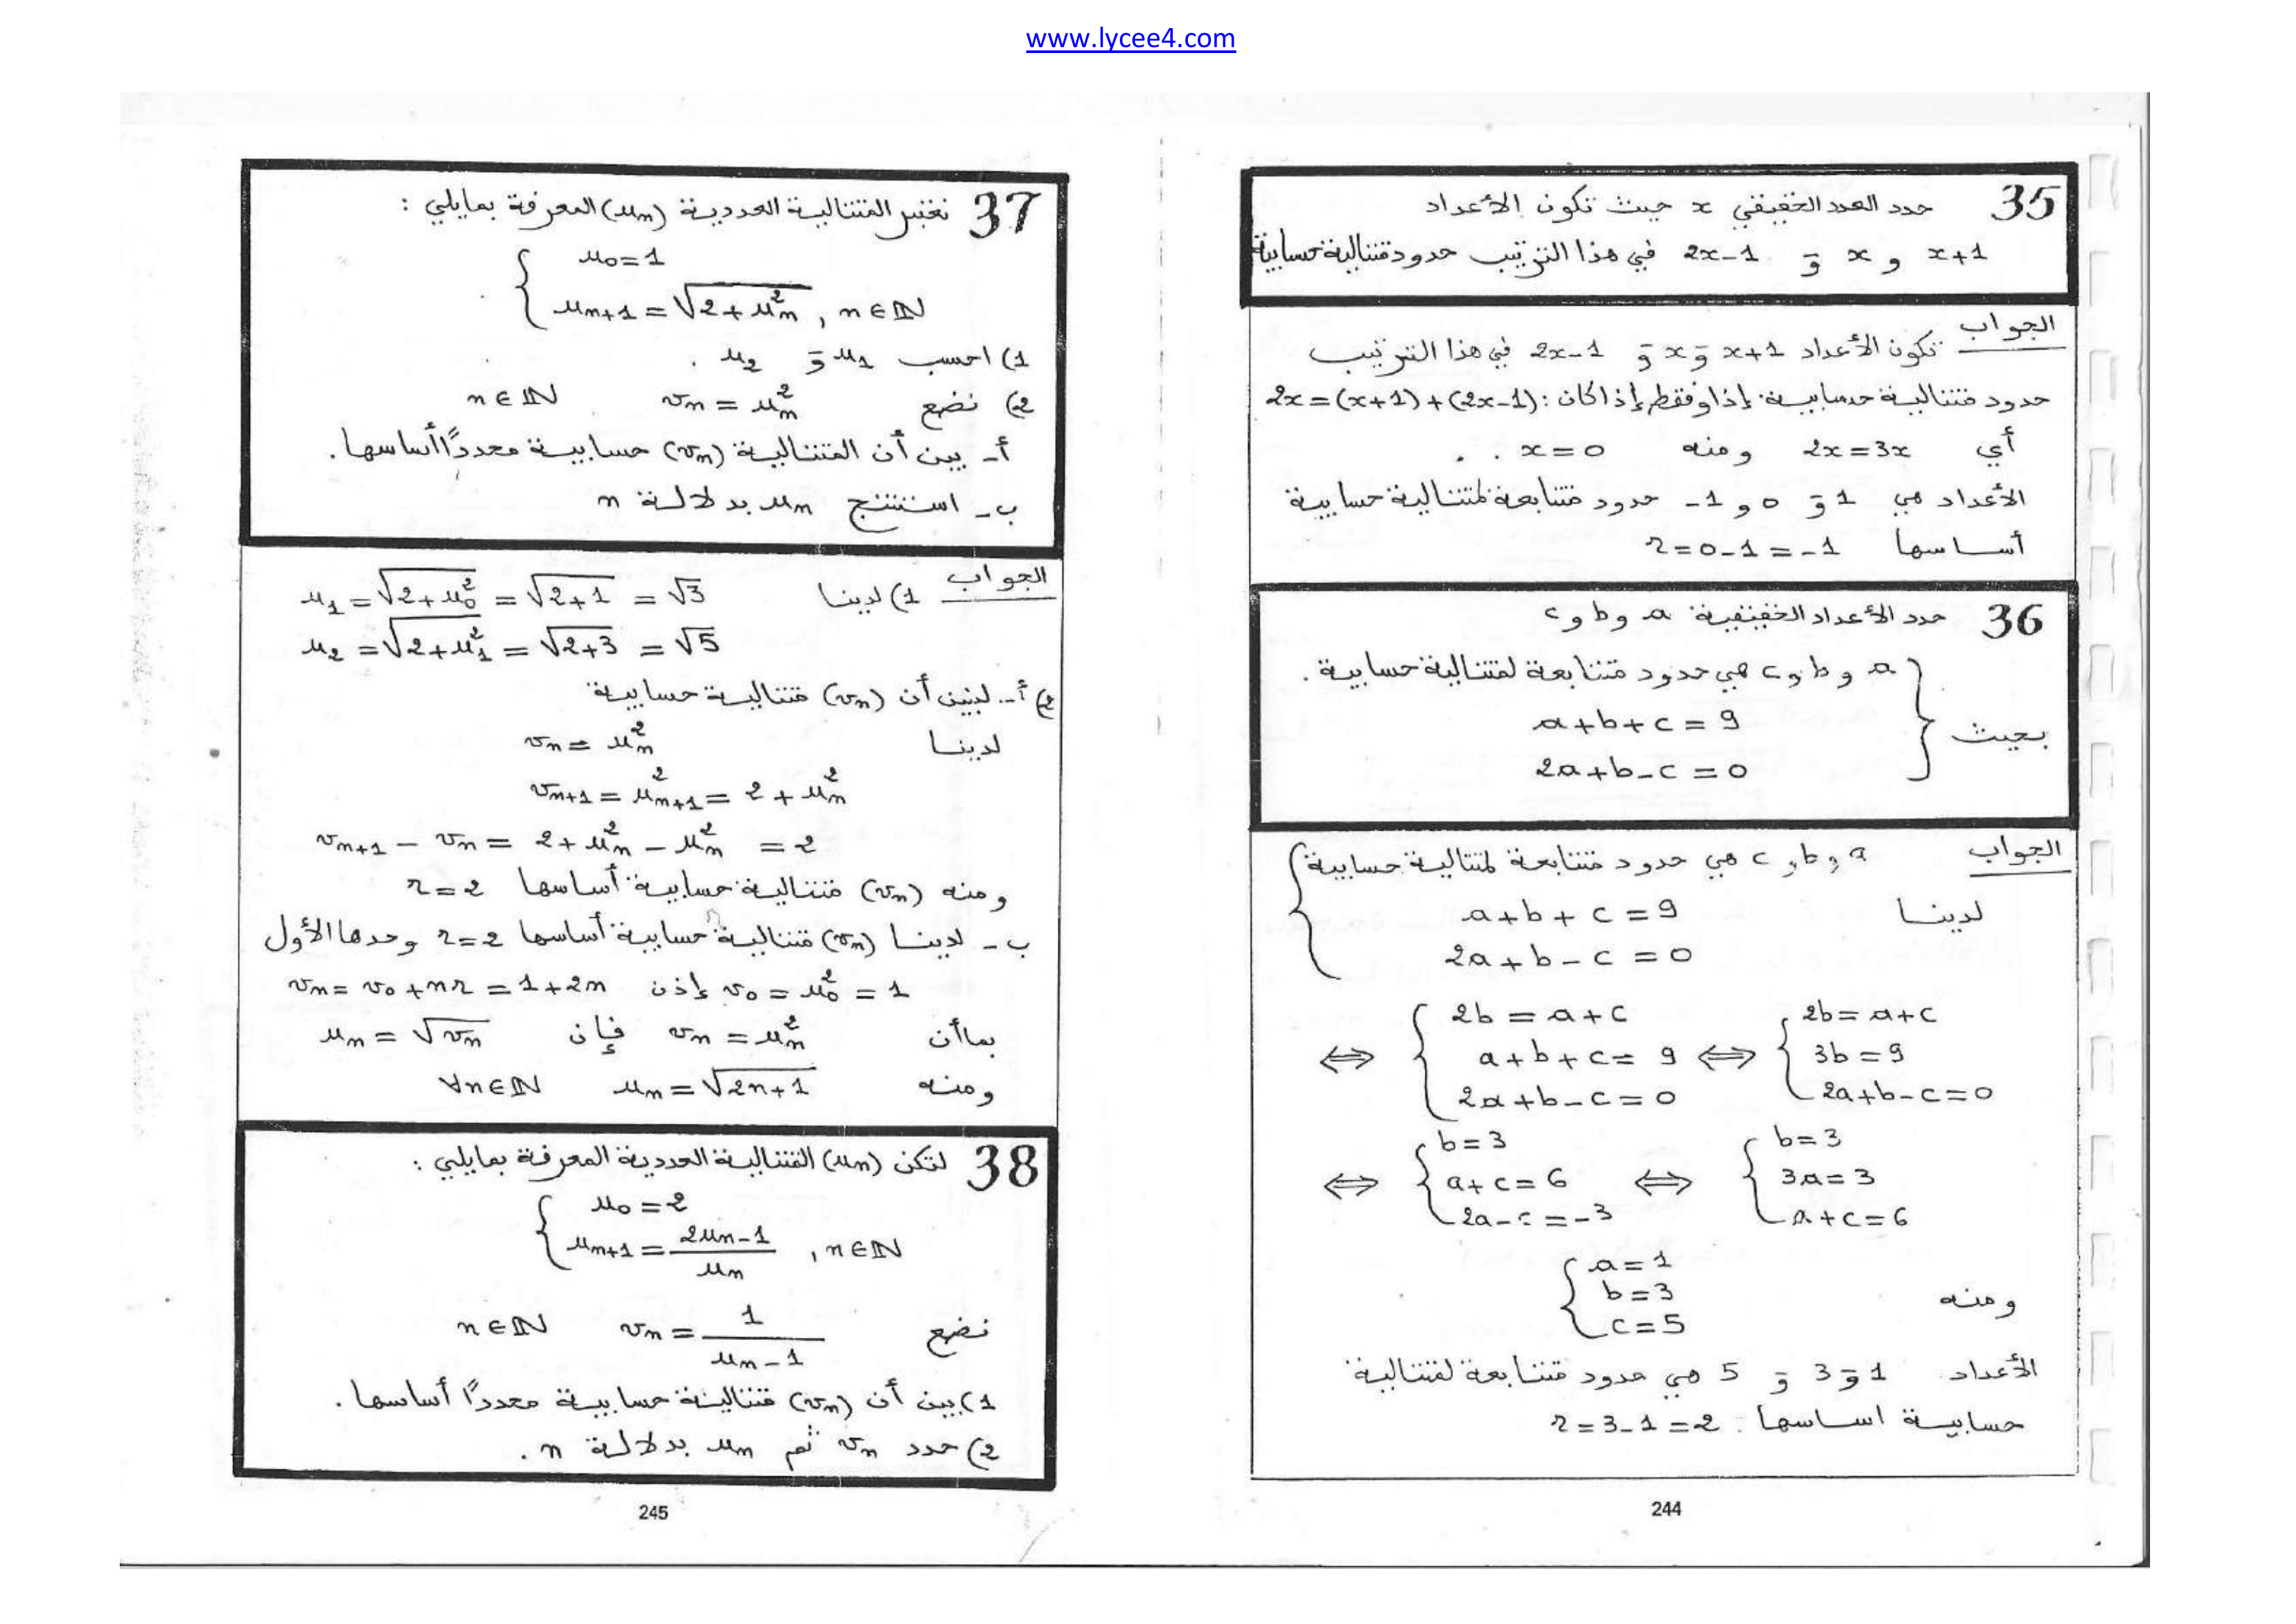 www.lycee4.com
35 حدد العدد الحقيقي x حيث تكون الأعداد
x+1 و x و 2x-1 في هذا الترتيب حدود متتالية حسابية
الجواب تكون الأعداد x+1 و x و 2x-1 في هذا الترتيب
حدود متتالية حسابية إذا وفقط إذا كان: 2x=(x+1)+(2x-1)
أي 2x=3x ومنه x=0 .
الأعداد هي 1 و 0 و -1 حدود متتابعة لمتتالية حسابية
أساسها r=0-1=-1
36 حدد الأعداد الحقيقية a و b و c
a و b و c هي حدود متتابعة لمتتالية حسابية.
بحيث { a+b+c=9
2a+b-c=0
الجواب a و b و c هي حدود متتابعة لمتتالية حسابية
لدينا { a+b+c=9
2a+b-c=0
⇔ { 2b=a+c ⇔ { 2b=a+c
a+b+c=9 3b=9
2a+b-c=0 2a+b-c=0
⇔ { b=3 ⇔ { b=3
a+c=6 3a=3
2a-c=-3 a+c=6
{ a=1
ومنه b=3
c=5
الأعداد 1 و 3 و 5 هي حدود متتابعة لمتتالية
حسابية اساسها: r=3-1=2
244
37 نعتبر المتتالية العددية (uₙ) المعرفة بمايلي:
{ u₀=1
uₙ₊₁=√(2+uₙ²) , n∈ℕ
1) احسب u₁ و u₂ .
2) نضع vₙ=uₙ² n∈ℕ
أ- بين أن المتتالية (vₙ) حسابية محدداً أساسها.
ب- استنتج uₙ بدلالة n
الجواب 1) لدينا u₁=√(2+u₀²)=√(2+1)=√3
u₂=√(2+u₁²)=√(2+3)=√5
2) أ- لنبين أن (vₙ) متتالية حسابية
لدينا vₙ=uₙ²
vₙ₊₁=uₙ₊₁²=2+uₙ²
vₙ₊₁-vₙ=2+uₙ²-uₙ²=2
ومنه (vₙ) متتالية حسابية أساسها r=2
ب- لدينا (vₙ) متتالية حسابية أساسها r=2 وحدها الأول
v₀=u₀²=1 إذن vₙ=v₀+nr=1+2n
بما أن vₙ=uₙ² فإن uₙ=√vₙ
ومنه uₙ=√(2n+1) ∀n∈ℕ
38 لتكن (uₙ) المتتالية العددية المعرفة بمايلي:
{ u₀=2
uₙ₊₁=(2uₙ-1)/uₙ , n∈ℕ
نضع vₙ=1/(uₙ-1) n∈ℕ
1) بين أن (vₙ) متتالية حسابية محدداً أساسها.
2) حدد vₙ ثم uₙ بدلالة n .
245